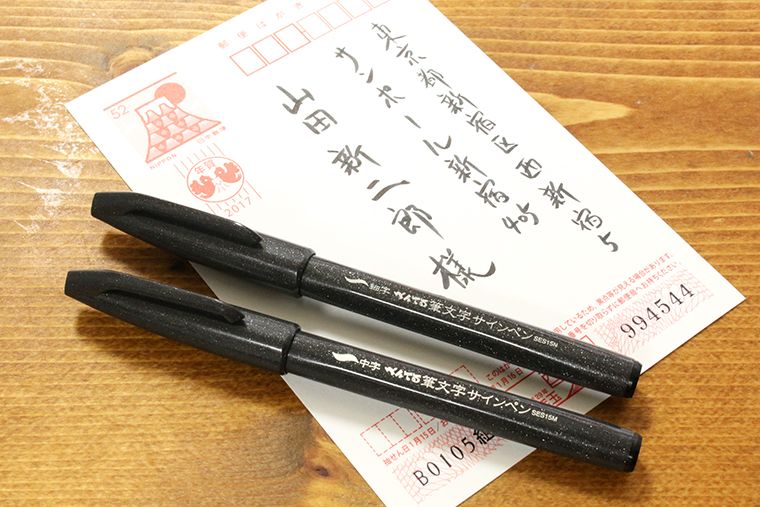 郵便はがき
52
NIPPON 日本郵便
年賀
2017
東京都新宿区西新宿5
サンポール新宿405
山田新二郎様
細字 筆文字サインペン SES15N
中字 筆文字サインペン SES15M
994544
B0105組